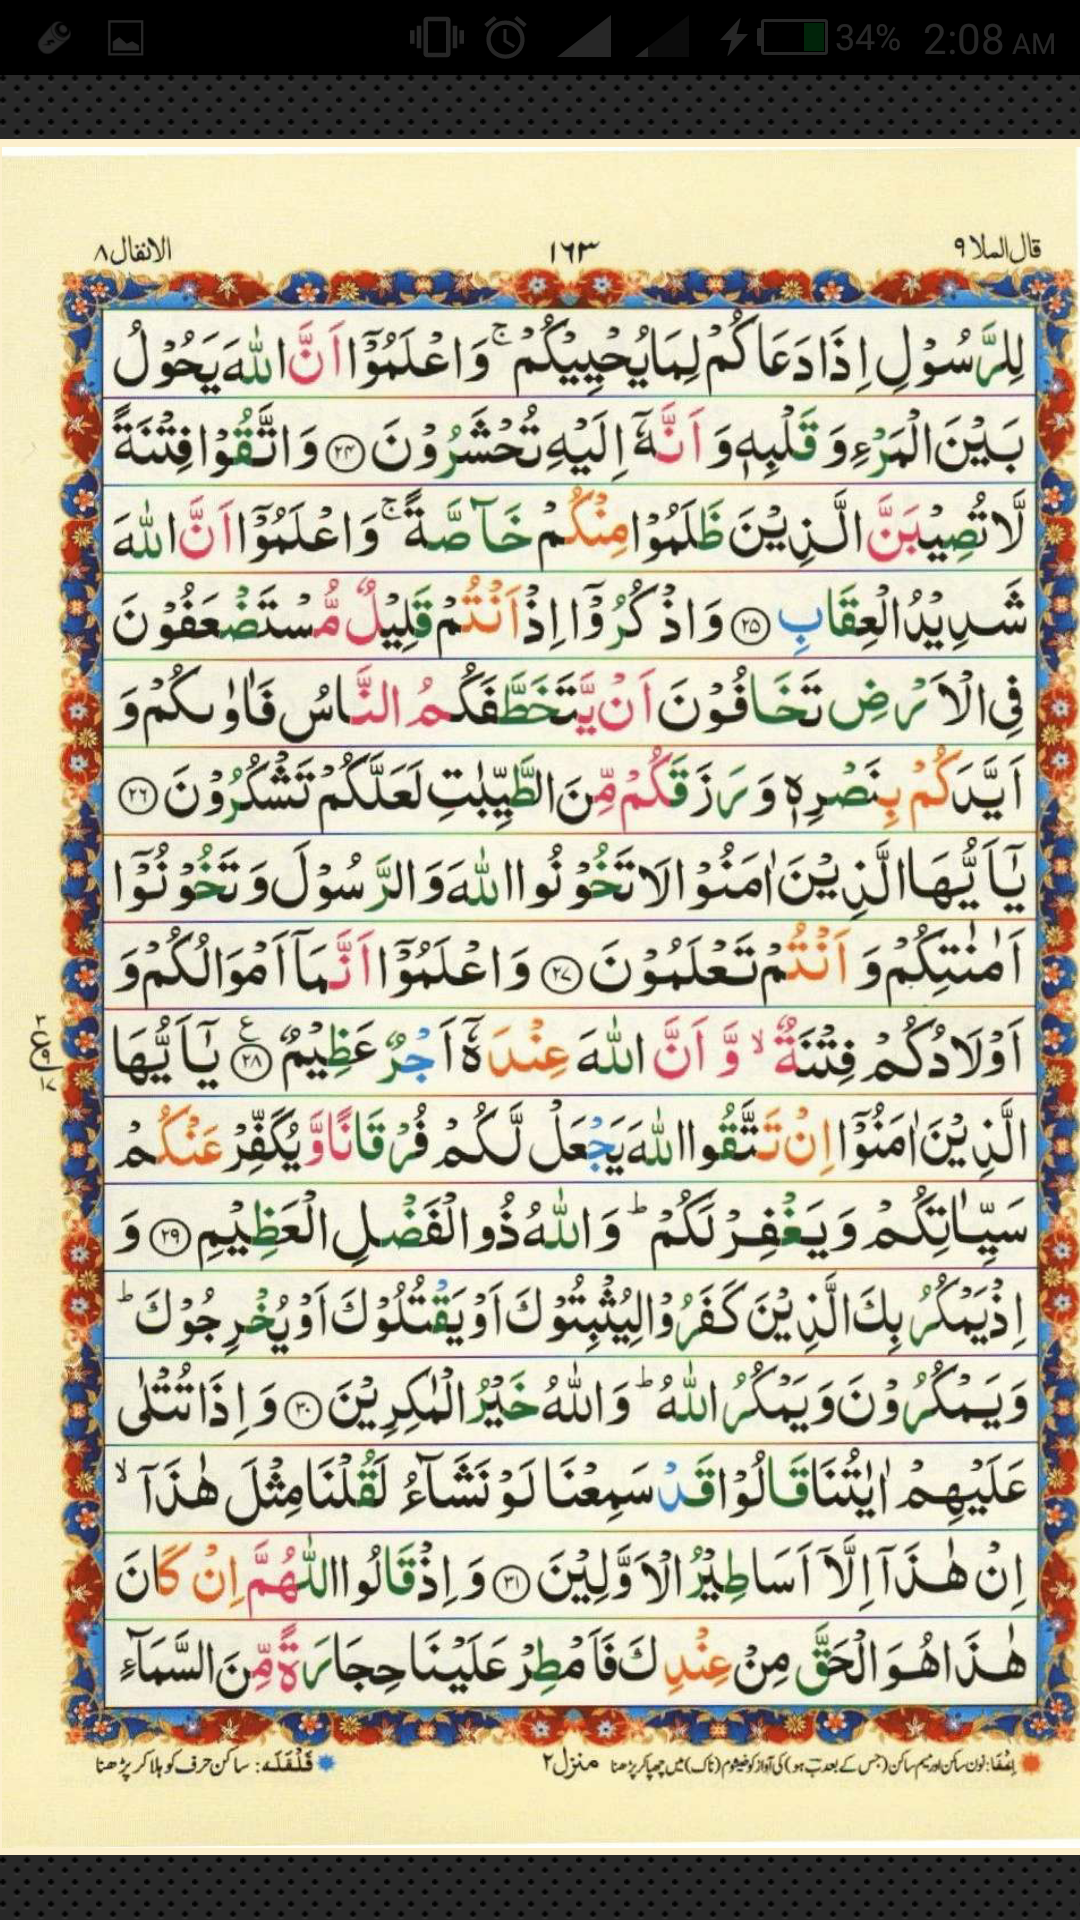 34% 2:08 AM
قال الملا ٩ ١٦٣ الانفال ٨
لِلرَّسُوْلِ اِذَا دَعَاكُمْ لِمَا يُحْيِيْكُمْ ۚ وَاعْلَمُوْٓا اَنَّ اللّٰهَ يَحُوْلُ
بَيْنَ الْمَرْءِ وَ قَلْبِهٖ وَ اَنَّهٗٓ اِلَيْهِ تُحْشَرُوْنَ ﴿٢٤﴾ وَاتَّقُوْا فِتْنَةً
لَّا تُصِيْبَنَّ الَّذِيْنَ ظَلَمُوْا مِنْكُمْ خَآصَّةً ۚ وَاعْلَمُوْٓا اَنَّ اللّٰهَ
شَدِيْدُ الْعِقَابِ ﴿٢٥﴾ وَاذْكُرُوْٓا اِذْ اَنْتُمْ قَلِيْلٌ مُّسْتَضْعَفُوْنَ
فِى الْاَرْضِ تَخَافُوْنَ اَنْ يَّتَخَطَّفَكُمُ النَّاسُ فَاٰوٰىكُمْ وَ
اَيَّدَكُمْ بِنَصْرِهٖ وَ رَزَقَكُمْ مِّنَ الطَّيِّبٰتِ لَعَلَّكُمْ تَشْكُرُوْنَ ﴿٢٦﴾
يٰٓاَيُّهَا الَّذِيْنَ اٰمَنُوْا لَا تَخُوْنُوا اللّٰهَ وَالرَّسُوْلَ وَ تَخُوْنُوْٓا
اَمٰنٰتِكُمْ وَ اَنْتُمْ تَعْلَمُوْنَ ﴿٢٧﴾ وَاعْلَمُوْٓا اَنَّمَآ اَمْوَالُكُمْ وَ
اَوْلَادُكُمْ فِتْنَةٌ ۙ وَّ اَنَّ اللّٰهَ عِنْدَهٗٓ اَجْرٌ عَظِيْمٌ ﴿٢٨﴾ ع يٰٓاَيُّهَا
الَّذِيْنَ اٰمَنُوْٓا اِنْ تَتَّقُوا اللّٰهَ يَجْعَلْ لَّكُمْ فُرْقَانًا وَّ يُكَفِّرْ عَنْكُمْ
سَيِّاٰتِكُمْ وَ يَغْفِرْ لَكُمْ ؕ وَاللّٰهُ ذُو الْفَضْلِ الْعَظِيْمِ ﴿٢٩﴾ وَ
اِذْ يَمْكُرُ بِكَ الَّذِيْنَ كَفَرُوْا لِيُثْبِتُوْكَ اَوْ يَقْتُلُوْكَ اَوْ يُخْرِجُوْكَ ؕ
وَ يَمْكُرُوْنَ وَ يَمْكُرُ اللّٰهُ ؕ وَاللّٰهُ خَيْرُ الْمٰكِرِيْنَ ﴿٣٠﴾ وَ اِذَا تُتْلٰى
عَلَيْهِمْ اٰيٰتُنَا قَالُوْا قَدْ سَمِعْنَا لَوْ نَشَآءُ لَقُلْنَا مِثْلَ هٰذَآ ۙ
اِنْ هٰذَآ اِلَّآ اَسَاطِيْرُ الْاَوَّلِيْنَ ﴿٣١﴾ وَ اِذْ قَالُوا اللّٰهُمَّ اِنْ كَانَ
هٰذَا هُوَ الْحَقَّ مِنْ عِنْدِكَ فَاَمْطِرْ عَلَيْنَا حِجَارَةً مِّنَ السَّمَآءِ
اِخْفَا: نون ساکن اور میم ساکن (جس کے بعد ب ہو) کی آواز کو خیشوم (ناک) میں چھپا کر پڑھنا منزل ٢ قَلْقَلَه: ساکن حرف کو ہلا کر پڑھنا